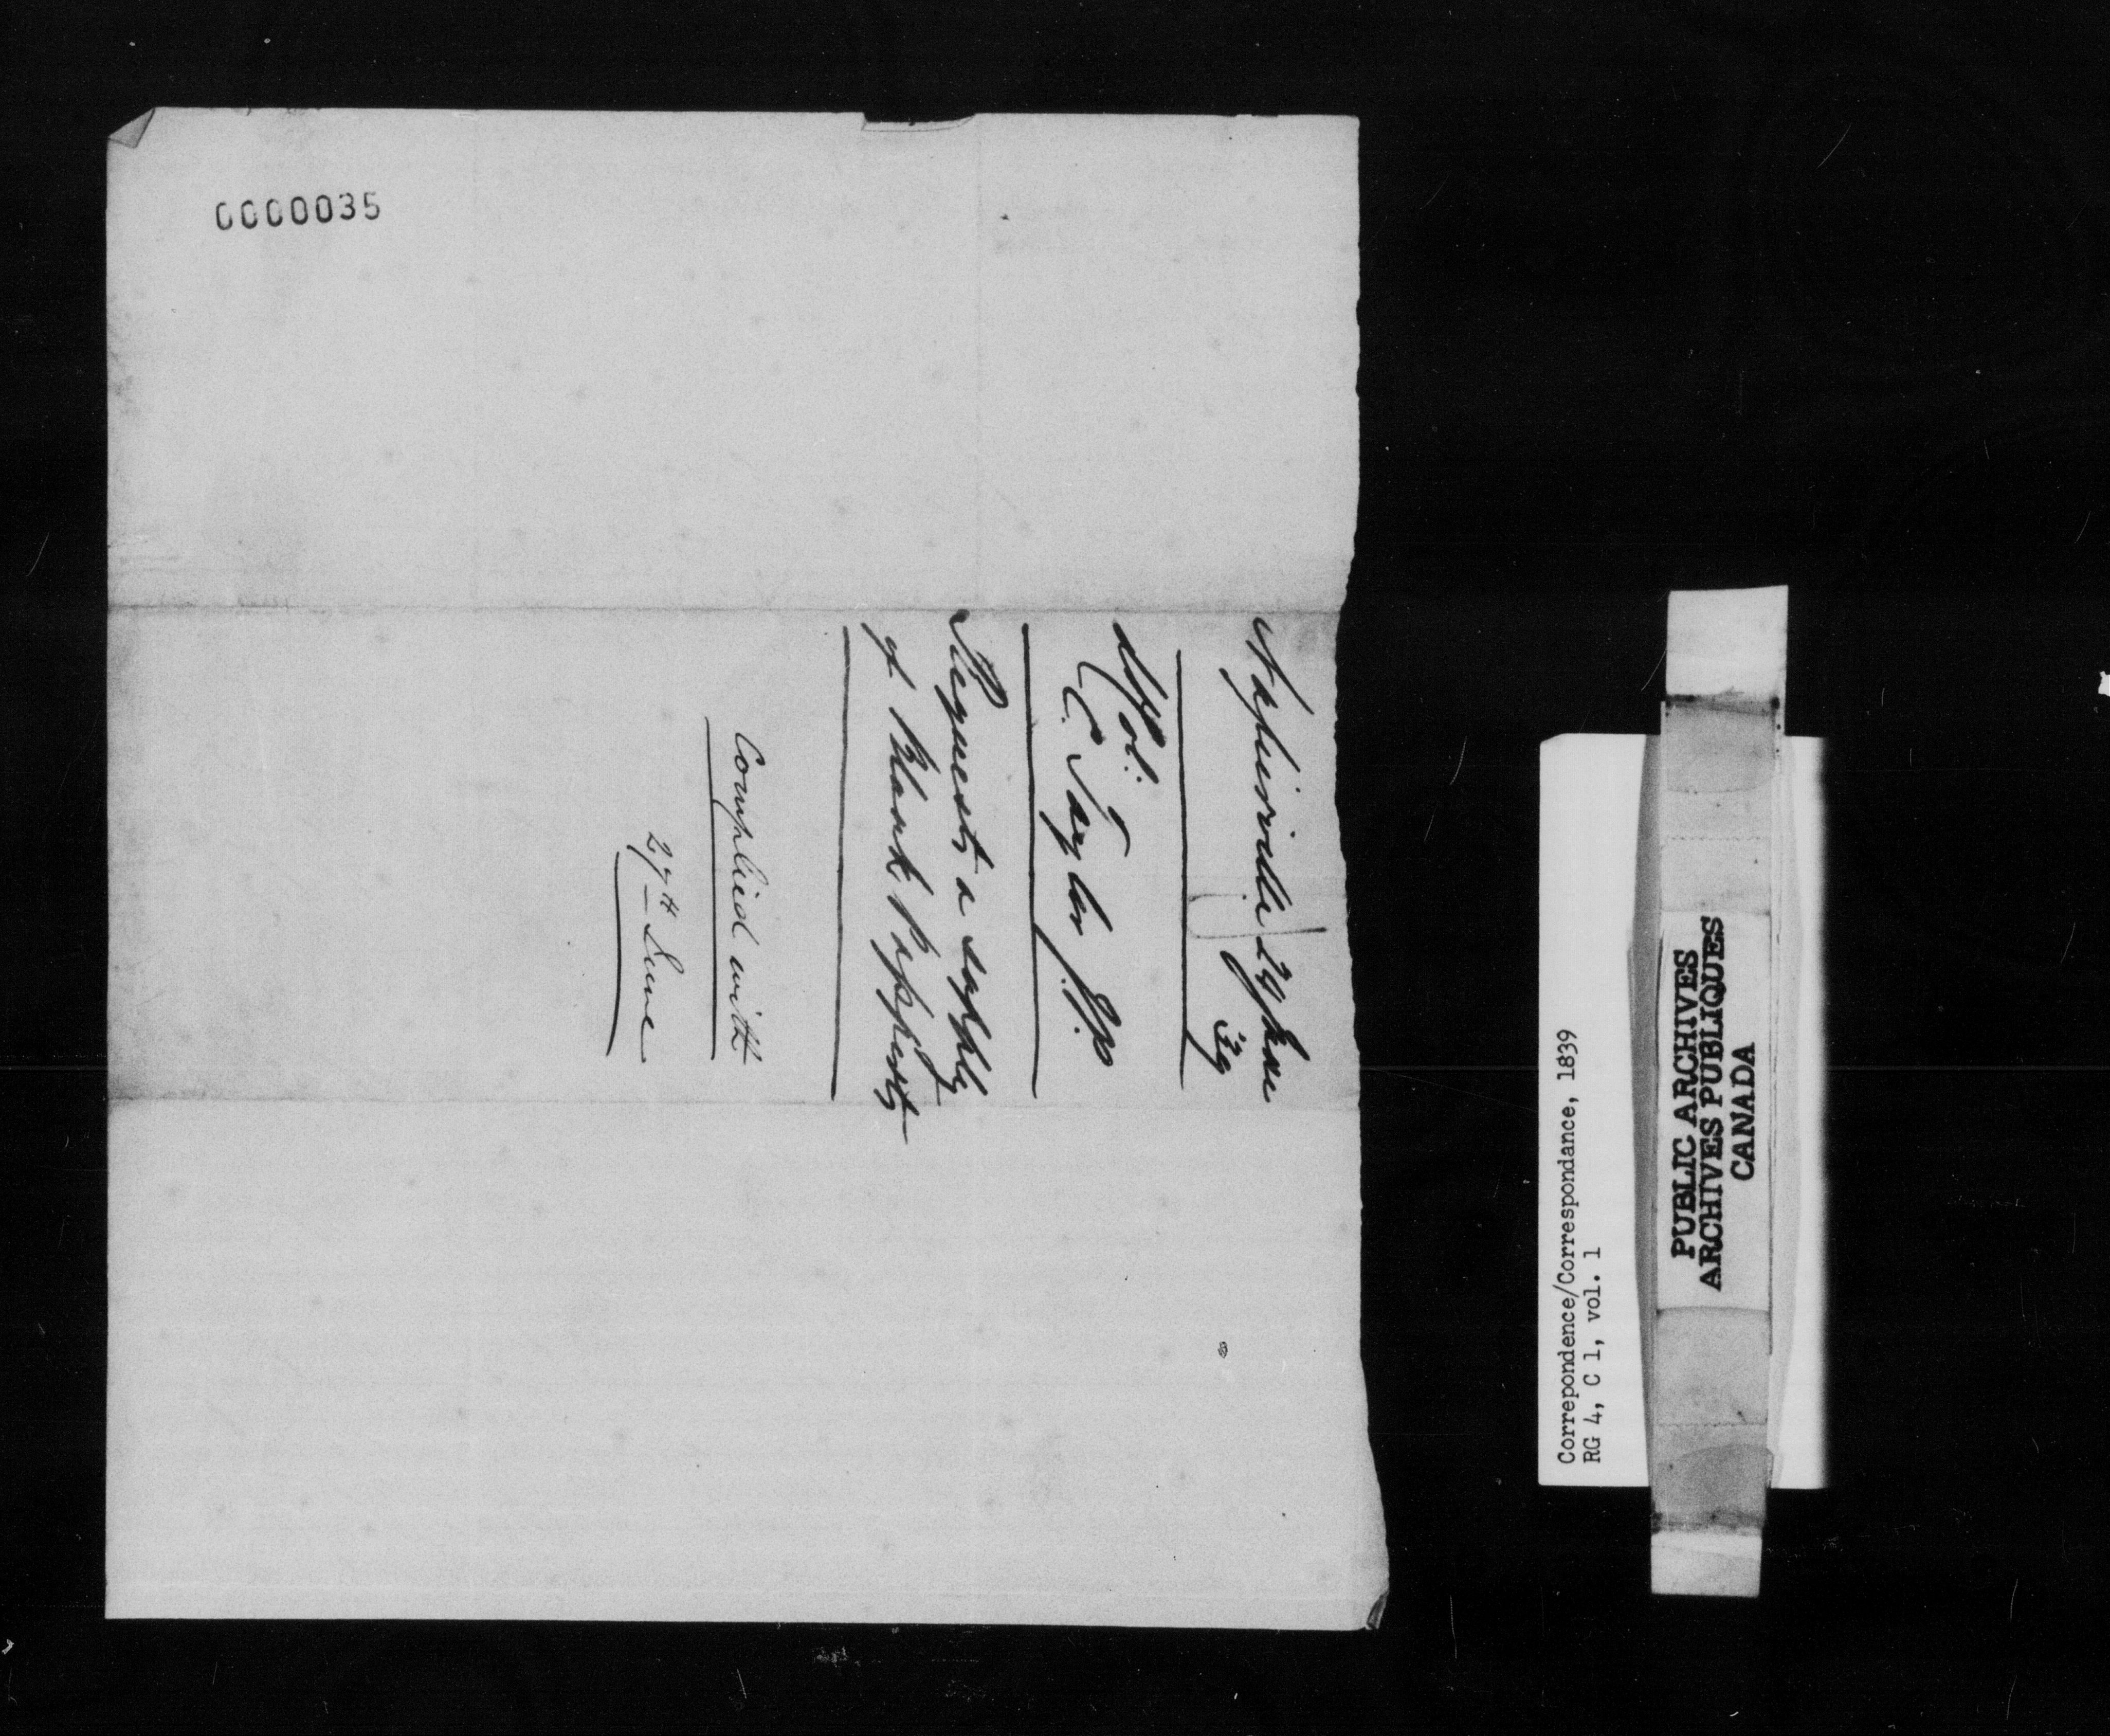 0000035
Napierville 24 June
39
Lt Col:
C. Taylor J.P.
Requests a supply
of Blank Passports
Complied with
27th June
Correpondence/Correspondance, 1839
RG 4, C 1, vol. 1
PUBLIC ARCHIVES
ARCHIVES PUBLIQUES
CANADA